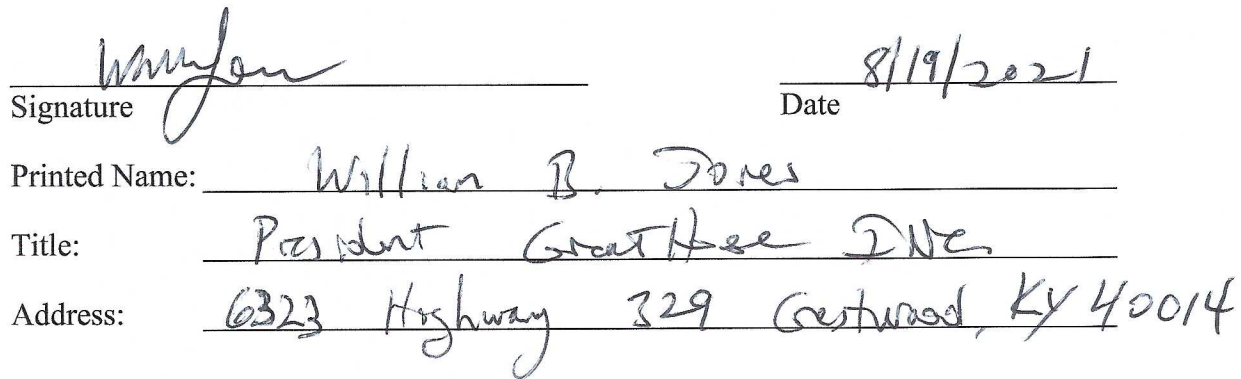 8/19/2021
Signature Date
Printed Name: William B. Jones
Title: President GreatHouse INC.
Address: 6323 Highway 329 Crestwood, KY 40014